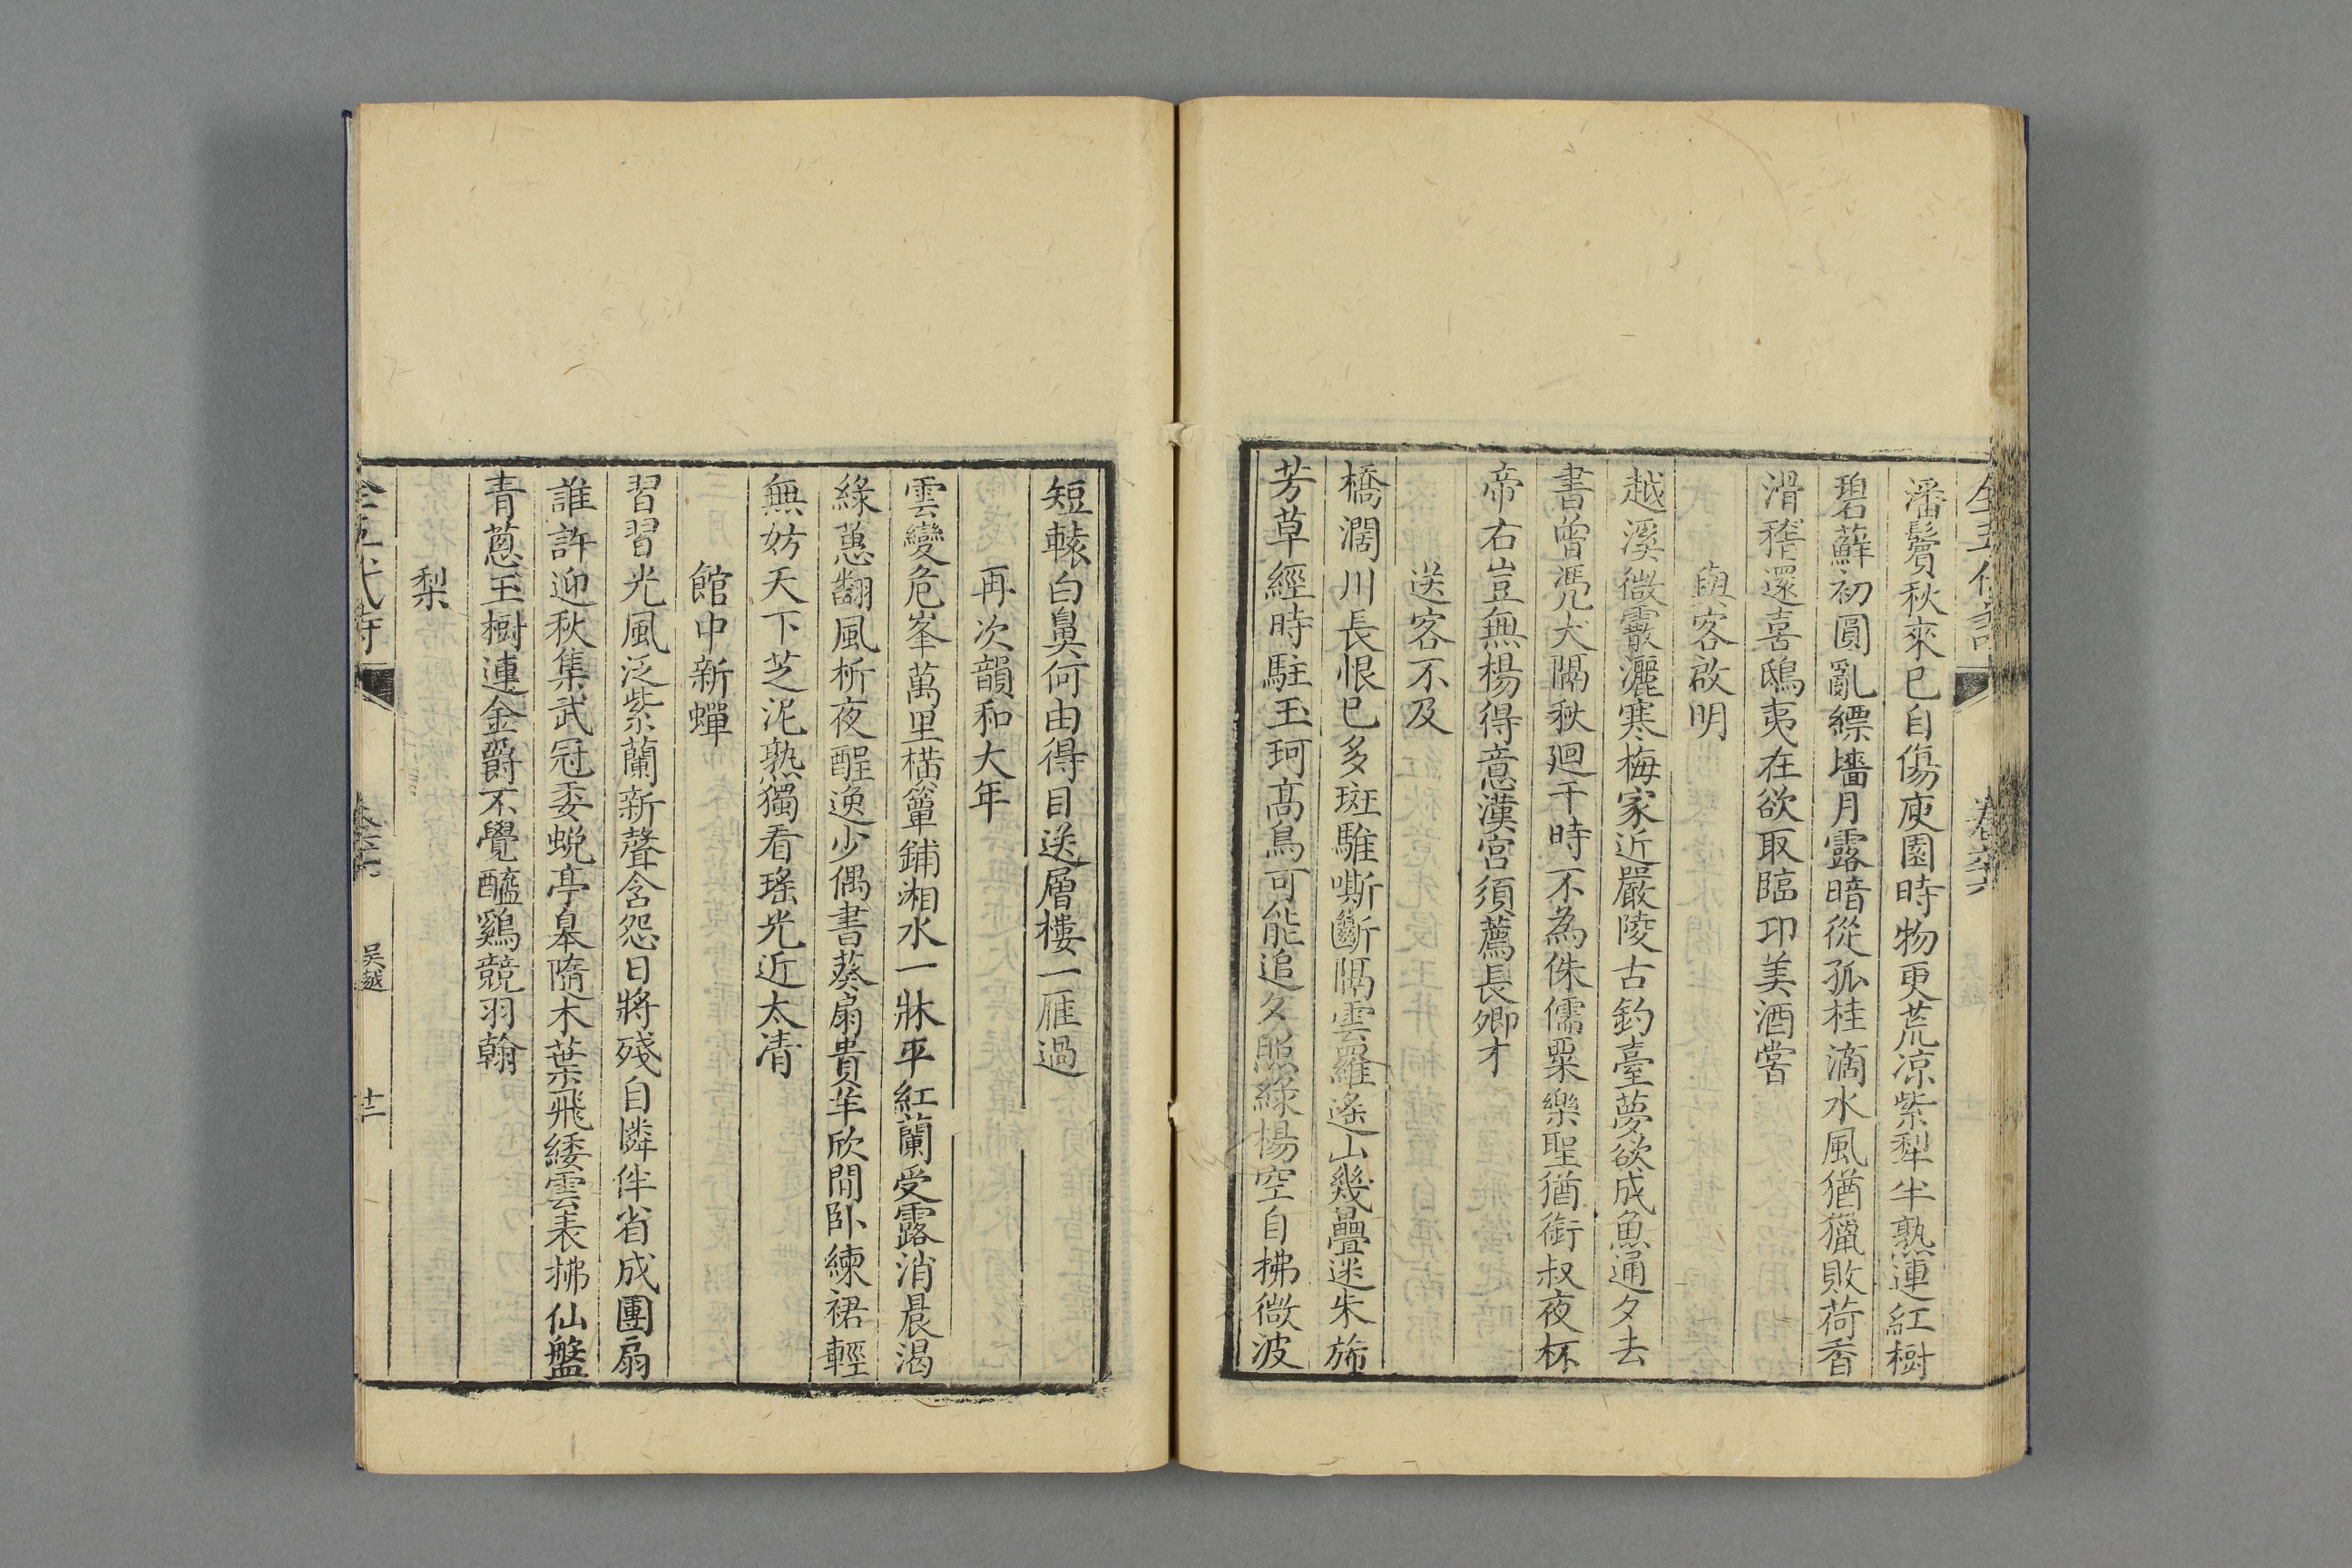 潘鬢秋來已自傷庾園時物更荒凉紫犁半熟連紅樹
碧蘚初圓亂縹墻月露暗從孤桂滴水風猶獵敗荷香
滑稽還喜鴟夷在欲取臨邛美酒嘗
與客啟明
越溪微霰灑寒梅家近嚴陵古釣臺夢欲成魚通夕去
書曾慿犬隔秋廻干時不為侏儒粟樂聖猶銜叔夜杯
帝右豈無楊得意漢宮須薦長卿才
送客不及
橋濶川長恨已多斑騅嘶斷隔雲羅遙山幾疊迷朱斾
芳草經時駐玉珂高鳥可能追夕照綠楊空自拂微波
短轅白鼻何由得目送層樓一雁過
再次韻和大年
雲變危峯萬里橫簟鋪湘水一牀平紅蘭受露消晨渴
綠蕙翻風析夜酲逸少偶書葵扇貴羊欣閒臥練裙輕
無妨天下芝泥熟獨看瑤光近太清
館中新蟬
習習光風泛紫蘭新聲含怨日將殘自憐伴省成團扇
誰許迎秋集武冠委蛻亭皋隨木葉飛緌雲表拂仙盤
青蔥玉樹連金爵不覺醯鷄競羽翰
梨
全五代詩
吳越
十二